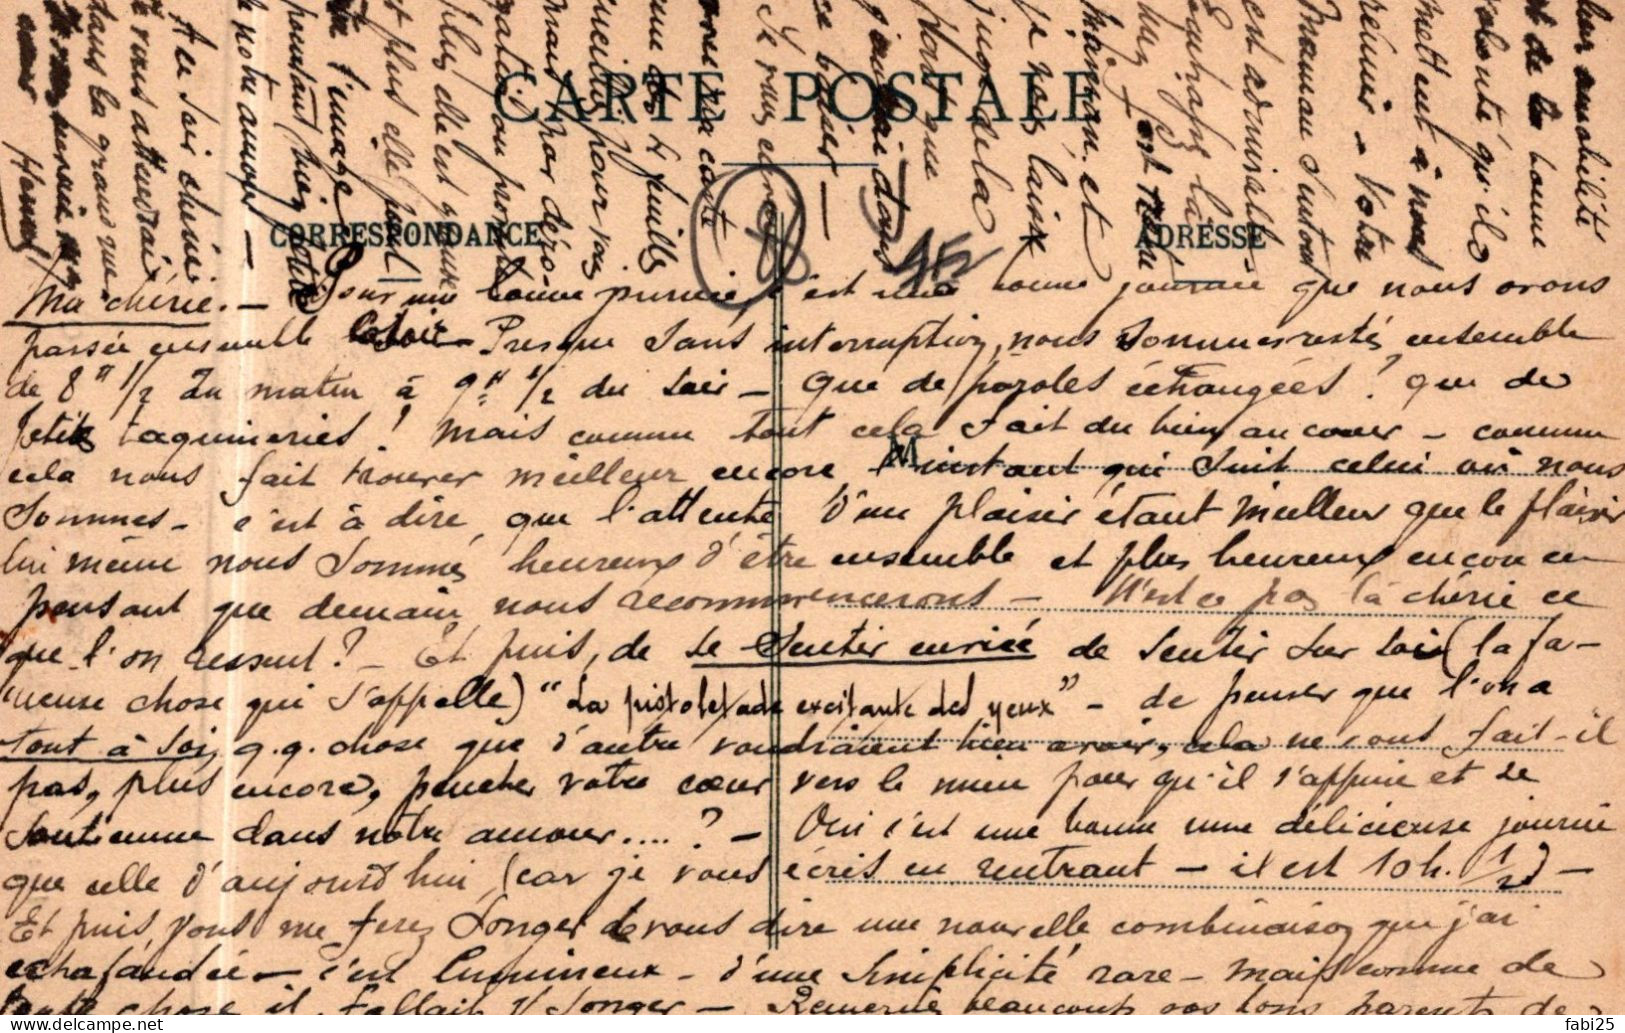 CARTE POSTALE
CORRESPONDANCE
ADRESSE
Ma chérie. — Pour une bonne journée c'est une bonne journée que nous avons
passée ensemble — Presque sans interruption, nous sommes restés ensemble
de 8 H 1/2 du matin à 9 H 1/2 du soir — que de paroles échangées ! que de
petites taquineries ! mais comme tout cela fait du bien au cœur — comme
cela nous fait trouver meilleur encore l'instant qui suit celui où nous
sommes — c'est à dire que l'attente d'un plaisir étant meilleur que le plaisir
lui même nous sommes heureux d'être ensemble et plus heureux encore en
pensant que demain nous recommencerons — N'est ce pas là chérie ce
que l'on ressent ? — Et puis, de se sentir enviée de sentir sur soi (la fa-
meuse chose qui s'appelle) "La pistoletade excitante des yeux" — de penser que l'on a
tout à soi, q.q. chose que d'autres voudraient bien avoir, cela ne vous fait-il
pas, plus encore, pencher votre cœur vers le mien pour qu'il s'appuie et se
soutienne dans notre amour .... ? — Oui c'est une bonne une délicieuse journée
que celle d'aujourd'hui (car je vous écris en rentrant — il est 10 h. 1/2) —
Et puis vous me ferez songer de vous dire une nouvelle combinaison que j'ai
echafaudée — c'est lumineux — d'une simplicité rare — mais comme de
toute chose il fallait y songer — Remerciez beaucoup vos bons parents de
leur amabilité
et de la bonne
volonté qu'ils
mettent à nous
réunir — Votre
Maman surtout
est admirable
Maman. et
je vous laisse
jusque là
votre carte
une des feuilles
plus elle est
et plus elle
l'image
pourtant bien
de notre amour —
A ce soir chérie
je vous attendrai
dans la grand rue
fabi25